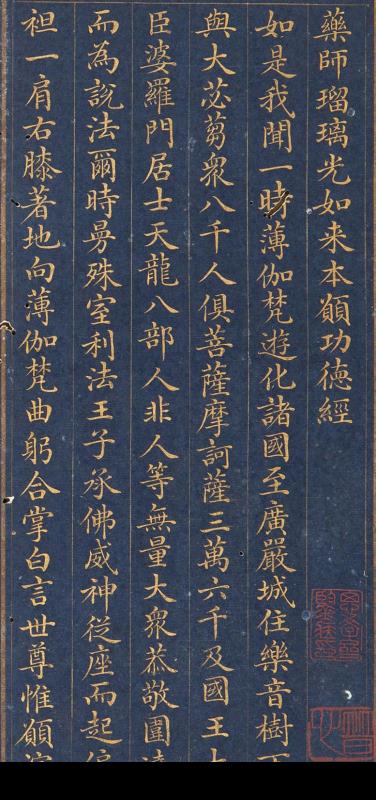 藥師瑠璃光如来本願功德經
如是我聞一時薄伽梵遊化諸國至廣嚴城住樂音樹下
與大苾蒭衆八千人俱菩薩摩訶薩三萬六千及國王大
臣婆羅門居士天龍八部人非人等無量大衆恭敬圍遶
而為說法爾時曼殊室利法王子承佛威神従座而起偏
袒一肩右膝著地向薄伽梵曲躬合掌白言世尊惟願演